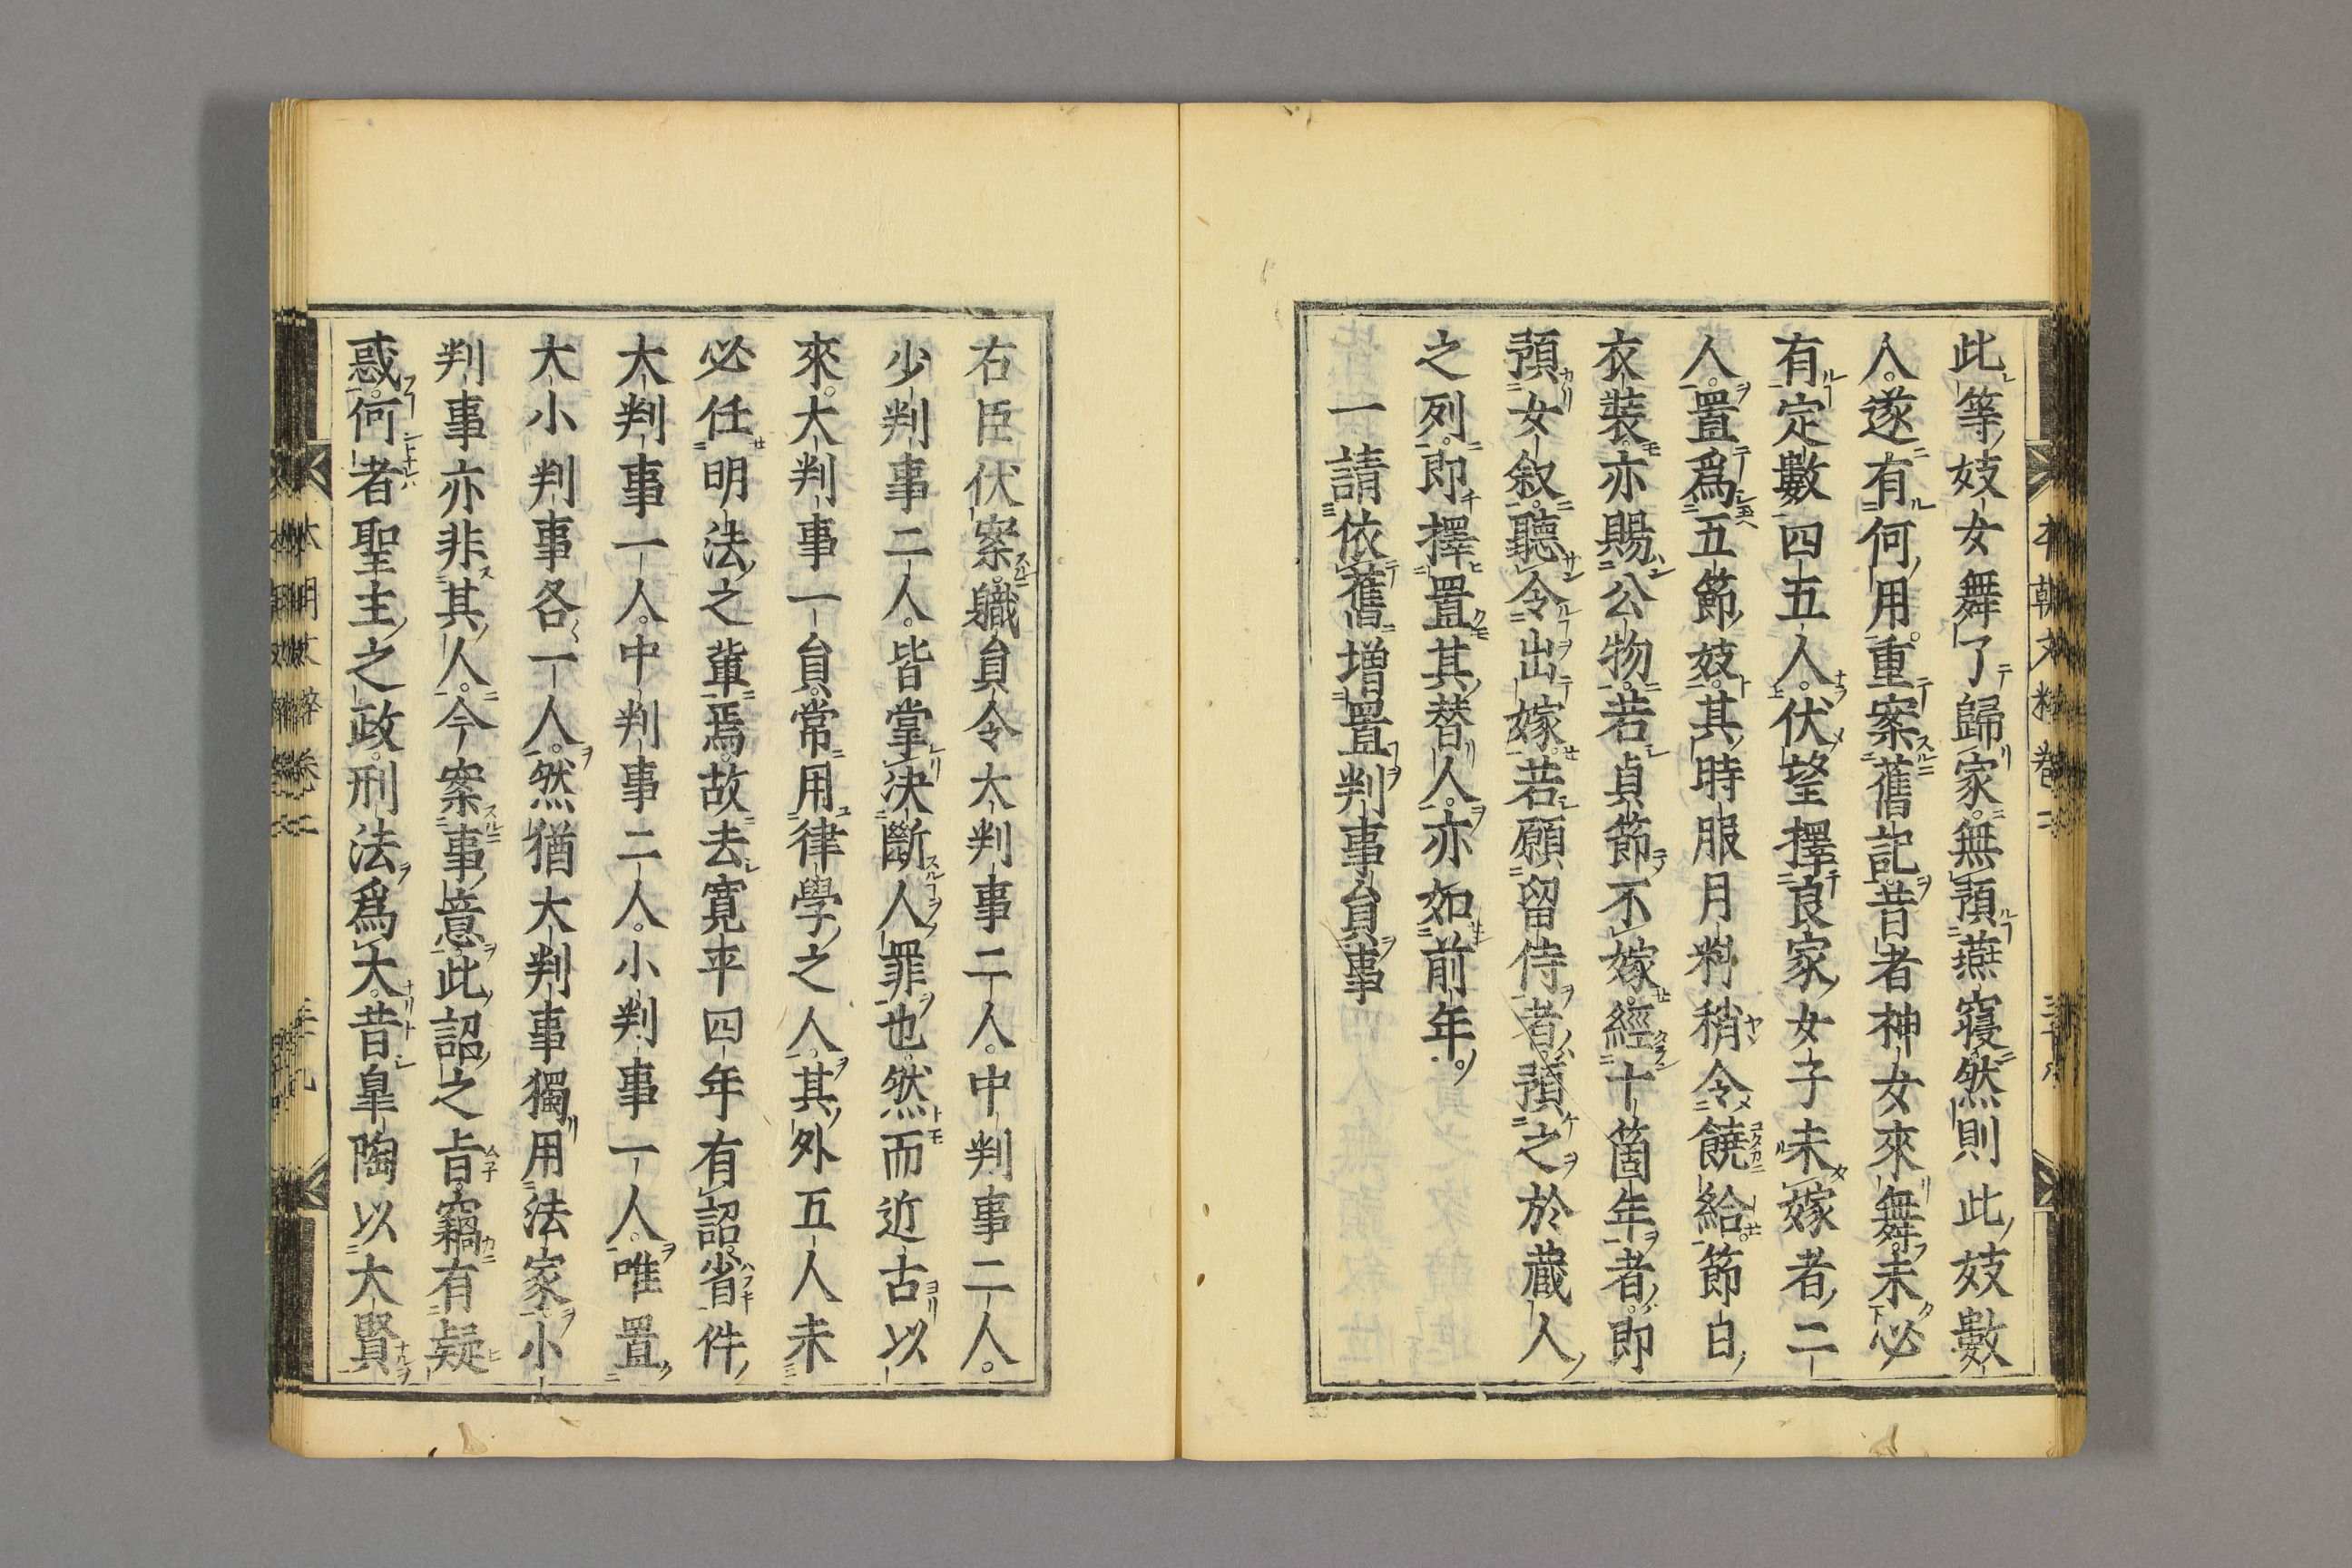 此等妓女舞了歸家無預燕寢然則此妓數
人遂有何用重案舊記昔者神女來舞未必
有定數四五人伏望擇良家女子未嫁者二
人置爲五節妓其時服月料稍令饒給節日
衣裝亦賜公物若貞節不嫁經十箇年者即
預女叙聽令出嫁若願留侍者預之於藏人
之列即擇置其替人亦如前年
一請依舊增置判事員事
右臣伏案職員令大判事二人中判事二人
少判事二人皆掌決斷人罪也然而近古以
來大判事一員常用律學之人其外五人未
必任明法之輩焉故去寛平四年有詔省件
大判事一人中判事二人小判事一人唯置
大小判事各一人然猶大判事獨用法家小
判事亦非其人今案事意此詔之旨竊有疑
惑何者聖主之政刑法爲大昔皐陶以大賢